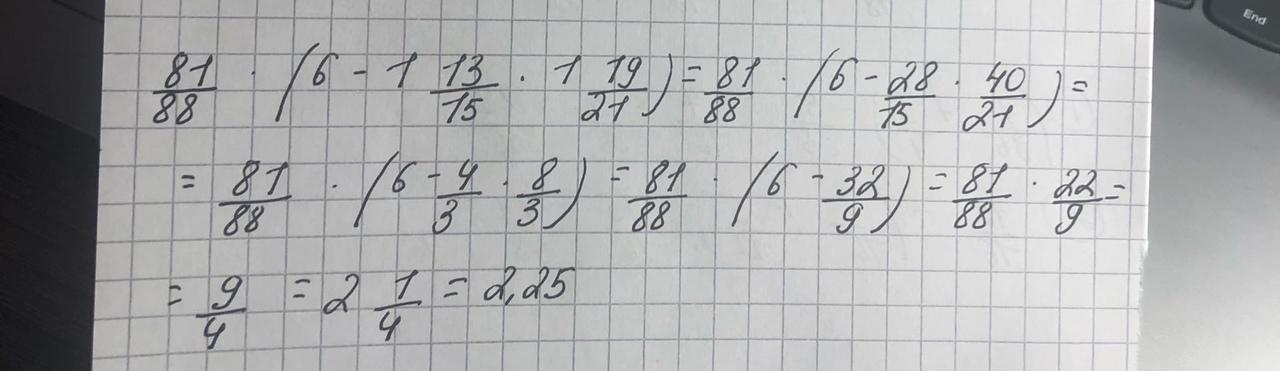 81/88 · (6 - 1 13/15 · 1 19/21) = 81/88 · (6 - 28/15 · 40/21) =
= 81/88 · (6 - 4/3 · 8/3) = 81/88 · (6 - 32/9) = 81/88 · 22/9 =
= 9/4 = 2 1/4 = 2,25
End